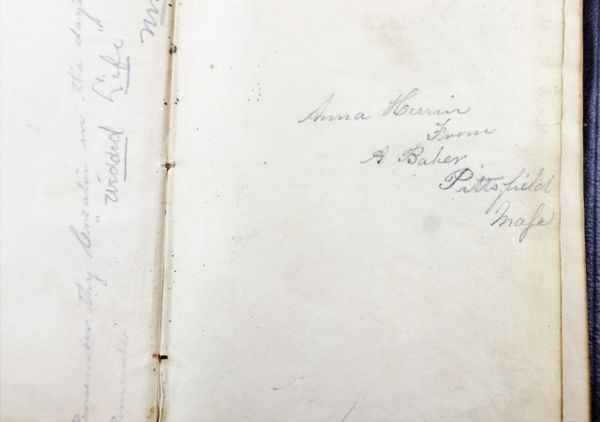 Remember thy Creator in the days
Remember
"Wedded Life"
Mrs
Anna Herrin
From
A Baker
Pittsfield
Mass